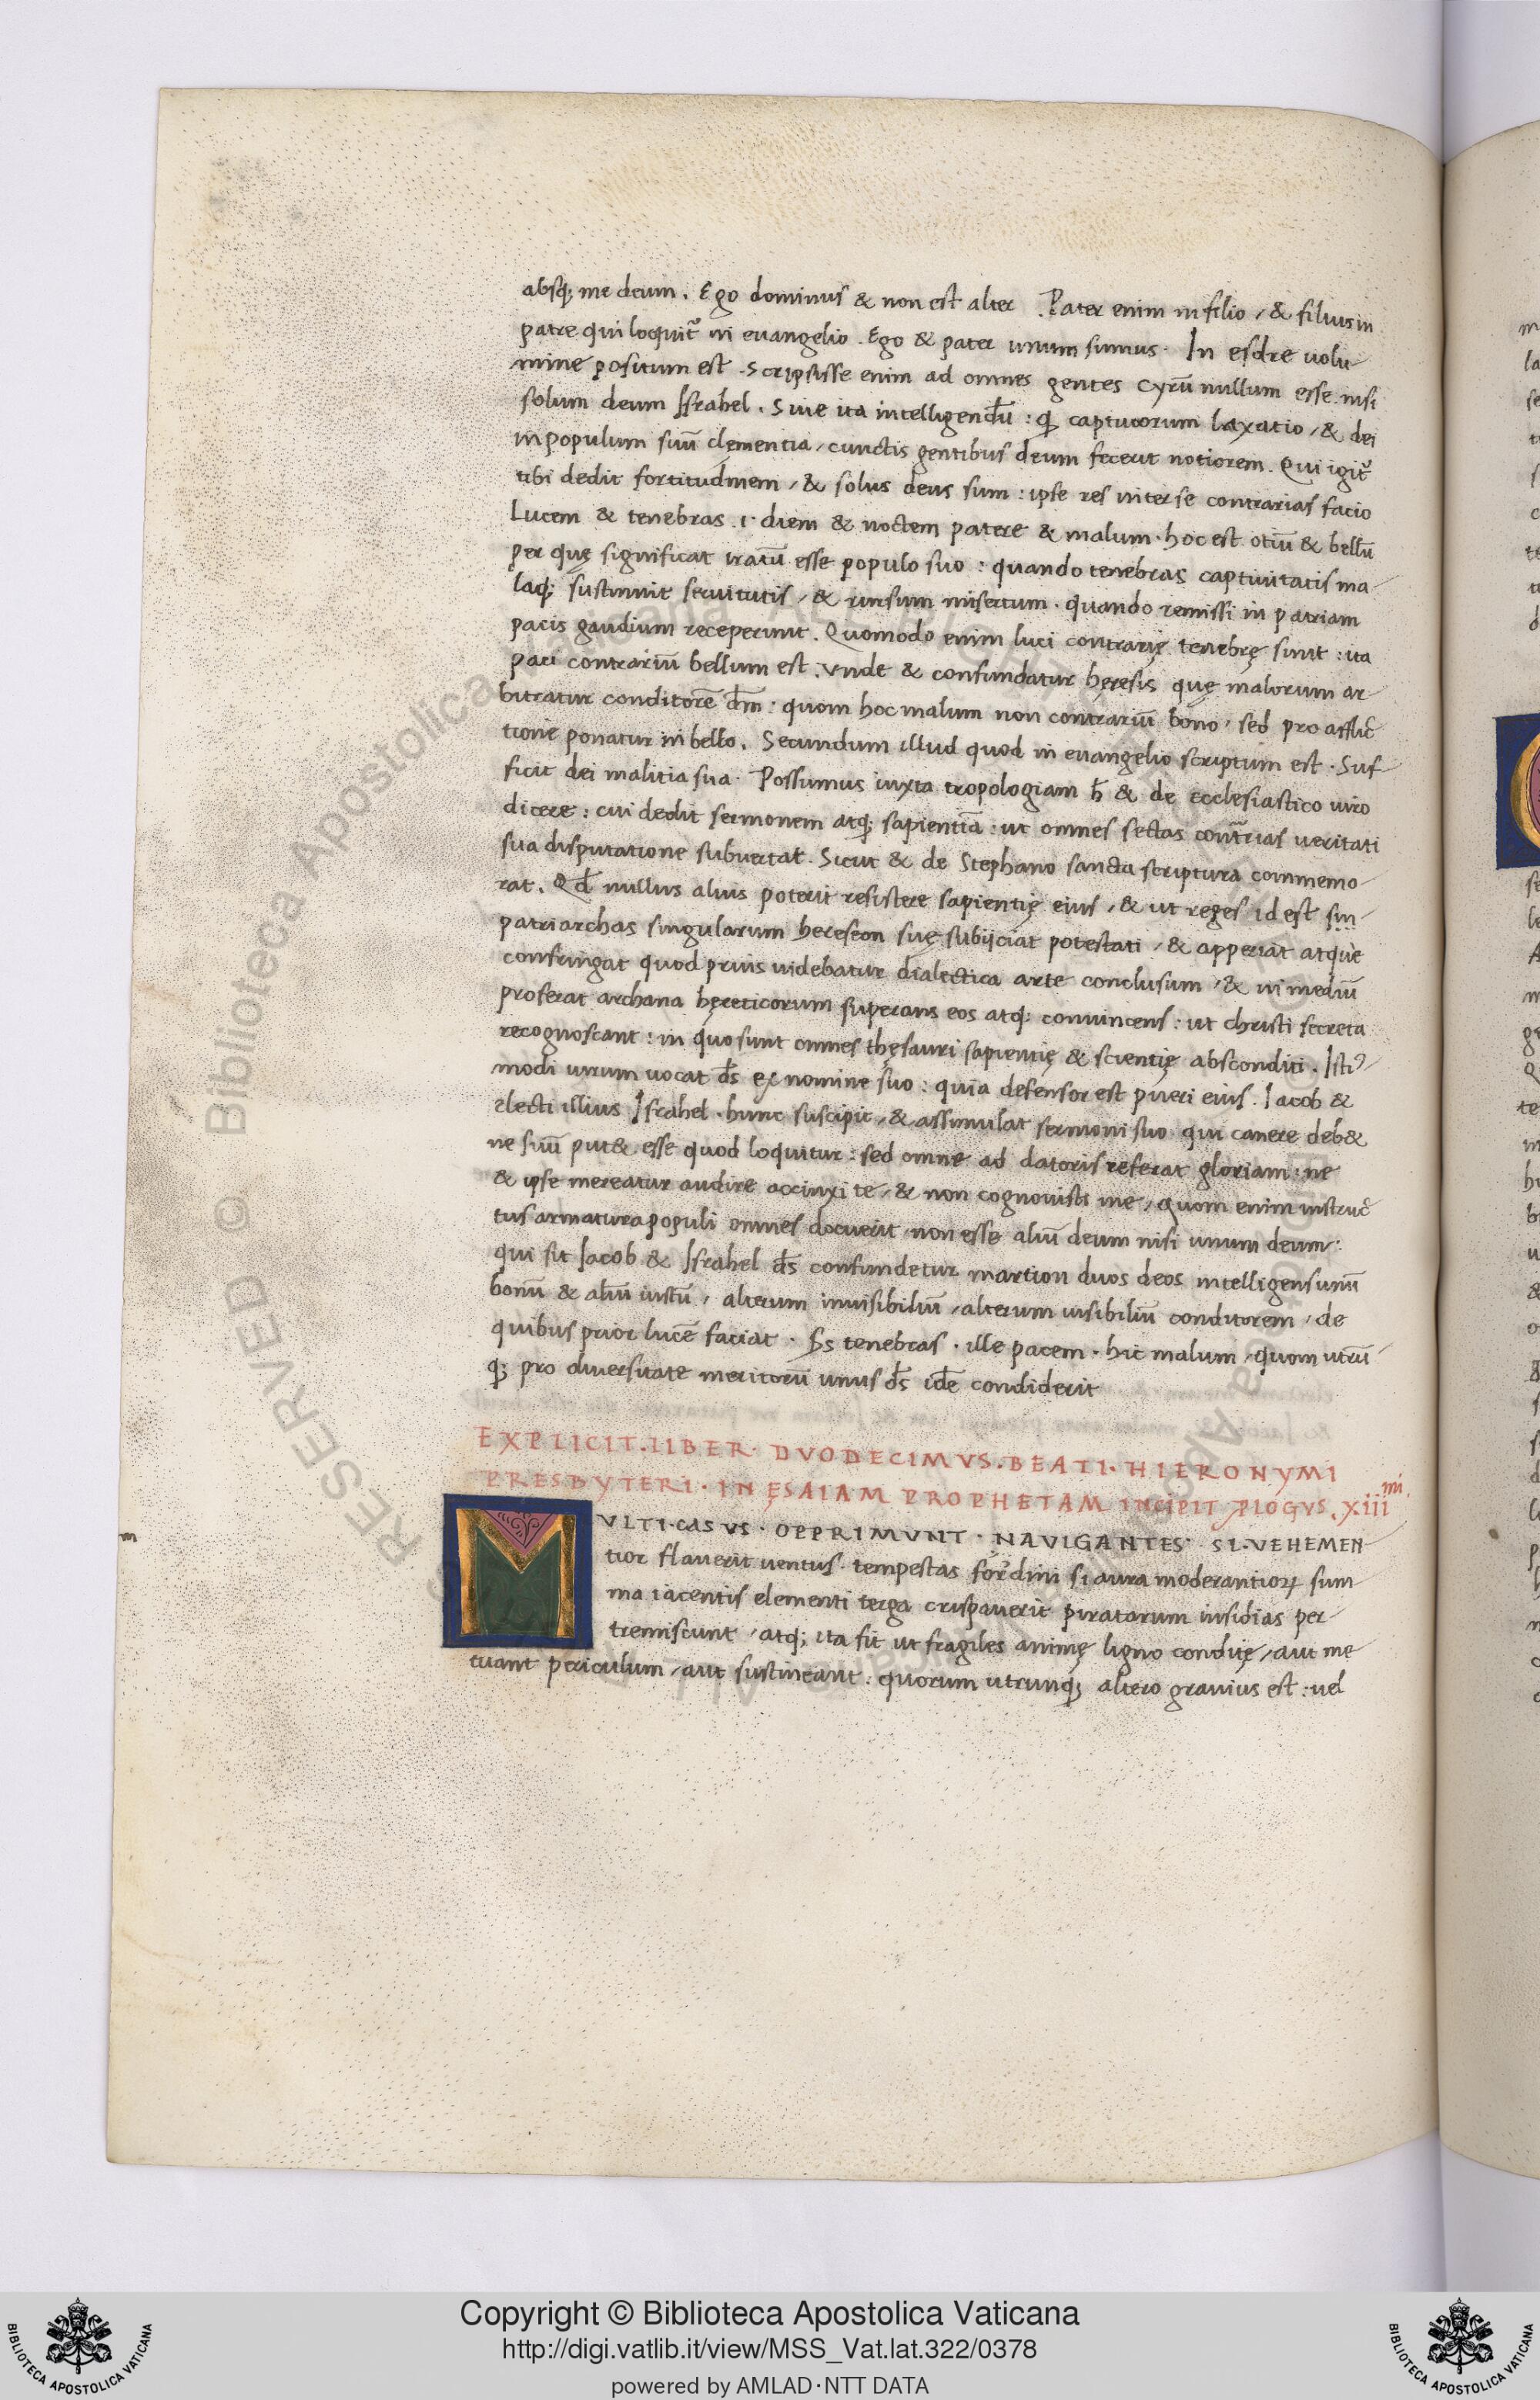 absq; me deum. Ego dominus & non est alter. Pater enim in filio, & filius in
patre qui loquit᷑ in euangelio. Ego & pater unum sumus. In esdre uolu-
mine positum est. Scripsisse enim ad omnes gentes Cyrū nullum esse nisi
solum deum Israhel. Siue ita intelligendū: ꝙ captiuorum laxatio, & dei
in populum suū clementia, cunctis gentibus deum fecerit notiorem. Qui igit᷑
tibi dedit fortitudinem, & solus deus sum: ipse res inter se contrarias facio
Lucem & tenebras .i. diem & noctem patere & malum. hoc est otiū & bellū
per quę significat iratū esse populo suo: quando tenebras captiuitatis ma-
laq; sustinuit seruitutis, & rursum misertum. quando remissi in patriam
pacis gaudium receperunt. Quomodo enim luci contrarię tenebrę sunt: ita
paci contrariū bellum est. Vnde & confundatur hęresis quę malorum ar
bitratur conditorē dm̄: quom hoc malum non contrariū bono, sed pro afflic̄
tione ponatur in bello. Secundum illud quod in euangelio scriptum est. Suf-
ficit dei malitia sua. Possumus iuxta tropologiam h̄ & de ecclesiastico uiro
dicere: cui dedit sermonem atq; sapientiā: ut omnes sectas cont̄rias ueritati
sua disputatione subuertat. Sicut & de Stephano sancta scriptura commemo-
rat. Qd̄ nullus alius poterit resistere sapientię eius, & ut reges id est sin-
patriarchas singularum hereseon suę subijciat potestati, & apperiat atque
confringat quod prius uidebatur dialectica arte conclusum, & in mediū
proferat archana hęreticorum superans eos atq; conuincens: ut christi secreta
recognoscant: in quo sunt omnes thęsauri sapientię & scientię absconditi. Istiꝰ
modi uirum uocat ds̄ ex nomine suo: quia defensor est pueri eius. Iacob &
electi illius Israhel. hunc suscipit, & assimulat sermoni suo qui canere deb&
ne suū put& esse quod loquitur: sed omne ad datoris referat gloriam: ne
& ipse mereatur audire accinxi te, & non cognouisti me, quom enim instruc̄
tus armatura populi omnes docuerit non esse aliū deum nisi unum deum:
qui sit Iacob & Israhel ds̄ confundetur martion duos deos intelligens unū
bonū & aliū iustū, alterum inuisibiliū, alterum uisibiliū conditorem, de
quibus prior lucē faciat. Ss tenebras. ille pacem. hic malum, quom utrū-
q; pro diuersitate meritorū unus ds̄ idē condiderit
EXPLICIT. LIBER. DVODECIMVS. BEATI. HIERONYMI
PRESBYTERI. IN ĘSAIAM PROPHETAM INCIPIT PLOGVS. Xiii mi.
m
MVLTI. CASVS. OPPRIMVNT. NAVIGANTES. SI. VEHEMEN-
tior flauerit uentus. tempestas formidini si aura moderantioꝝ sum-
ma iacentis elementi terga crispauerit piratarum insidias per-
tremiscunt, atq; ita fit ut fragiles animę ligno condię, aut me
tuant periculum, aut sustineant. quorum utrunq; altero grauius est: uel
Copyright © Biblioteca Apostolica Vaticana
http://digi.vatlib.it/view/MSS_Vat.lat.322/0378
powered by AMLAD·NTT DATA